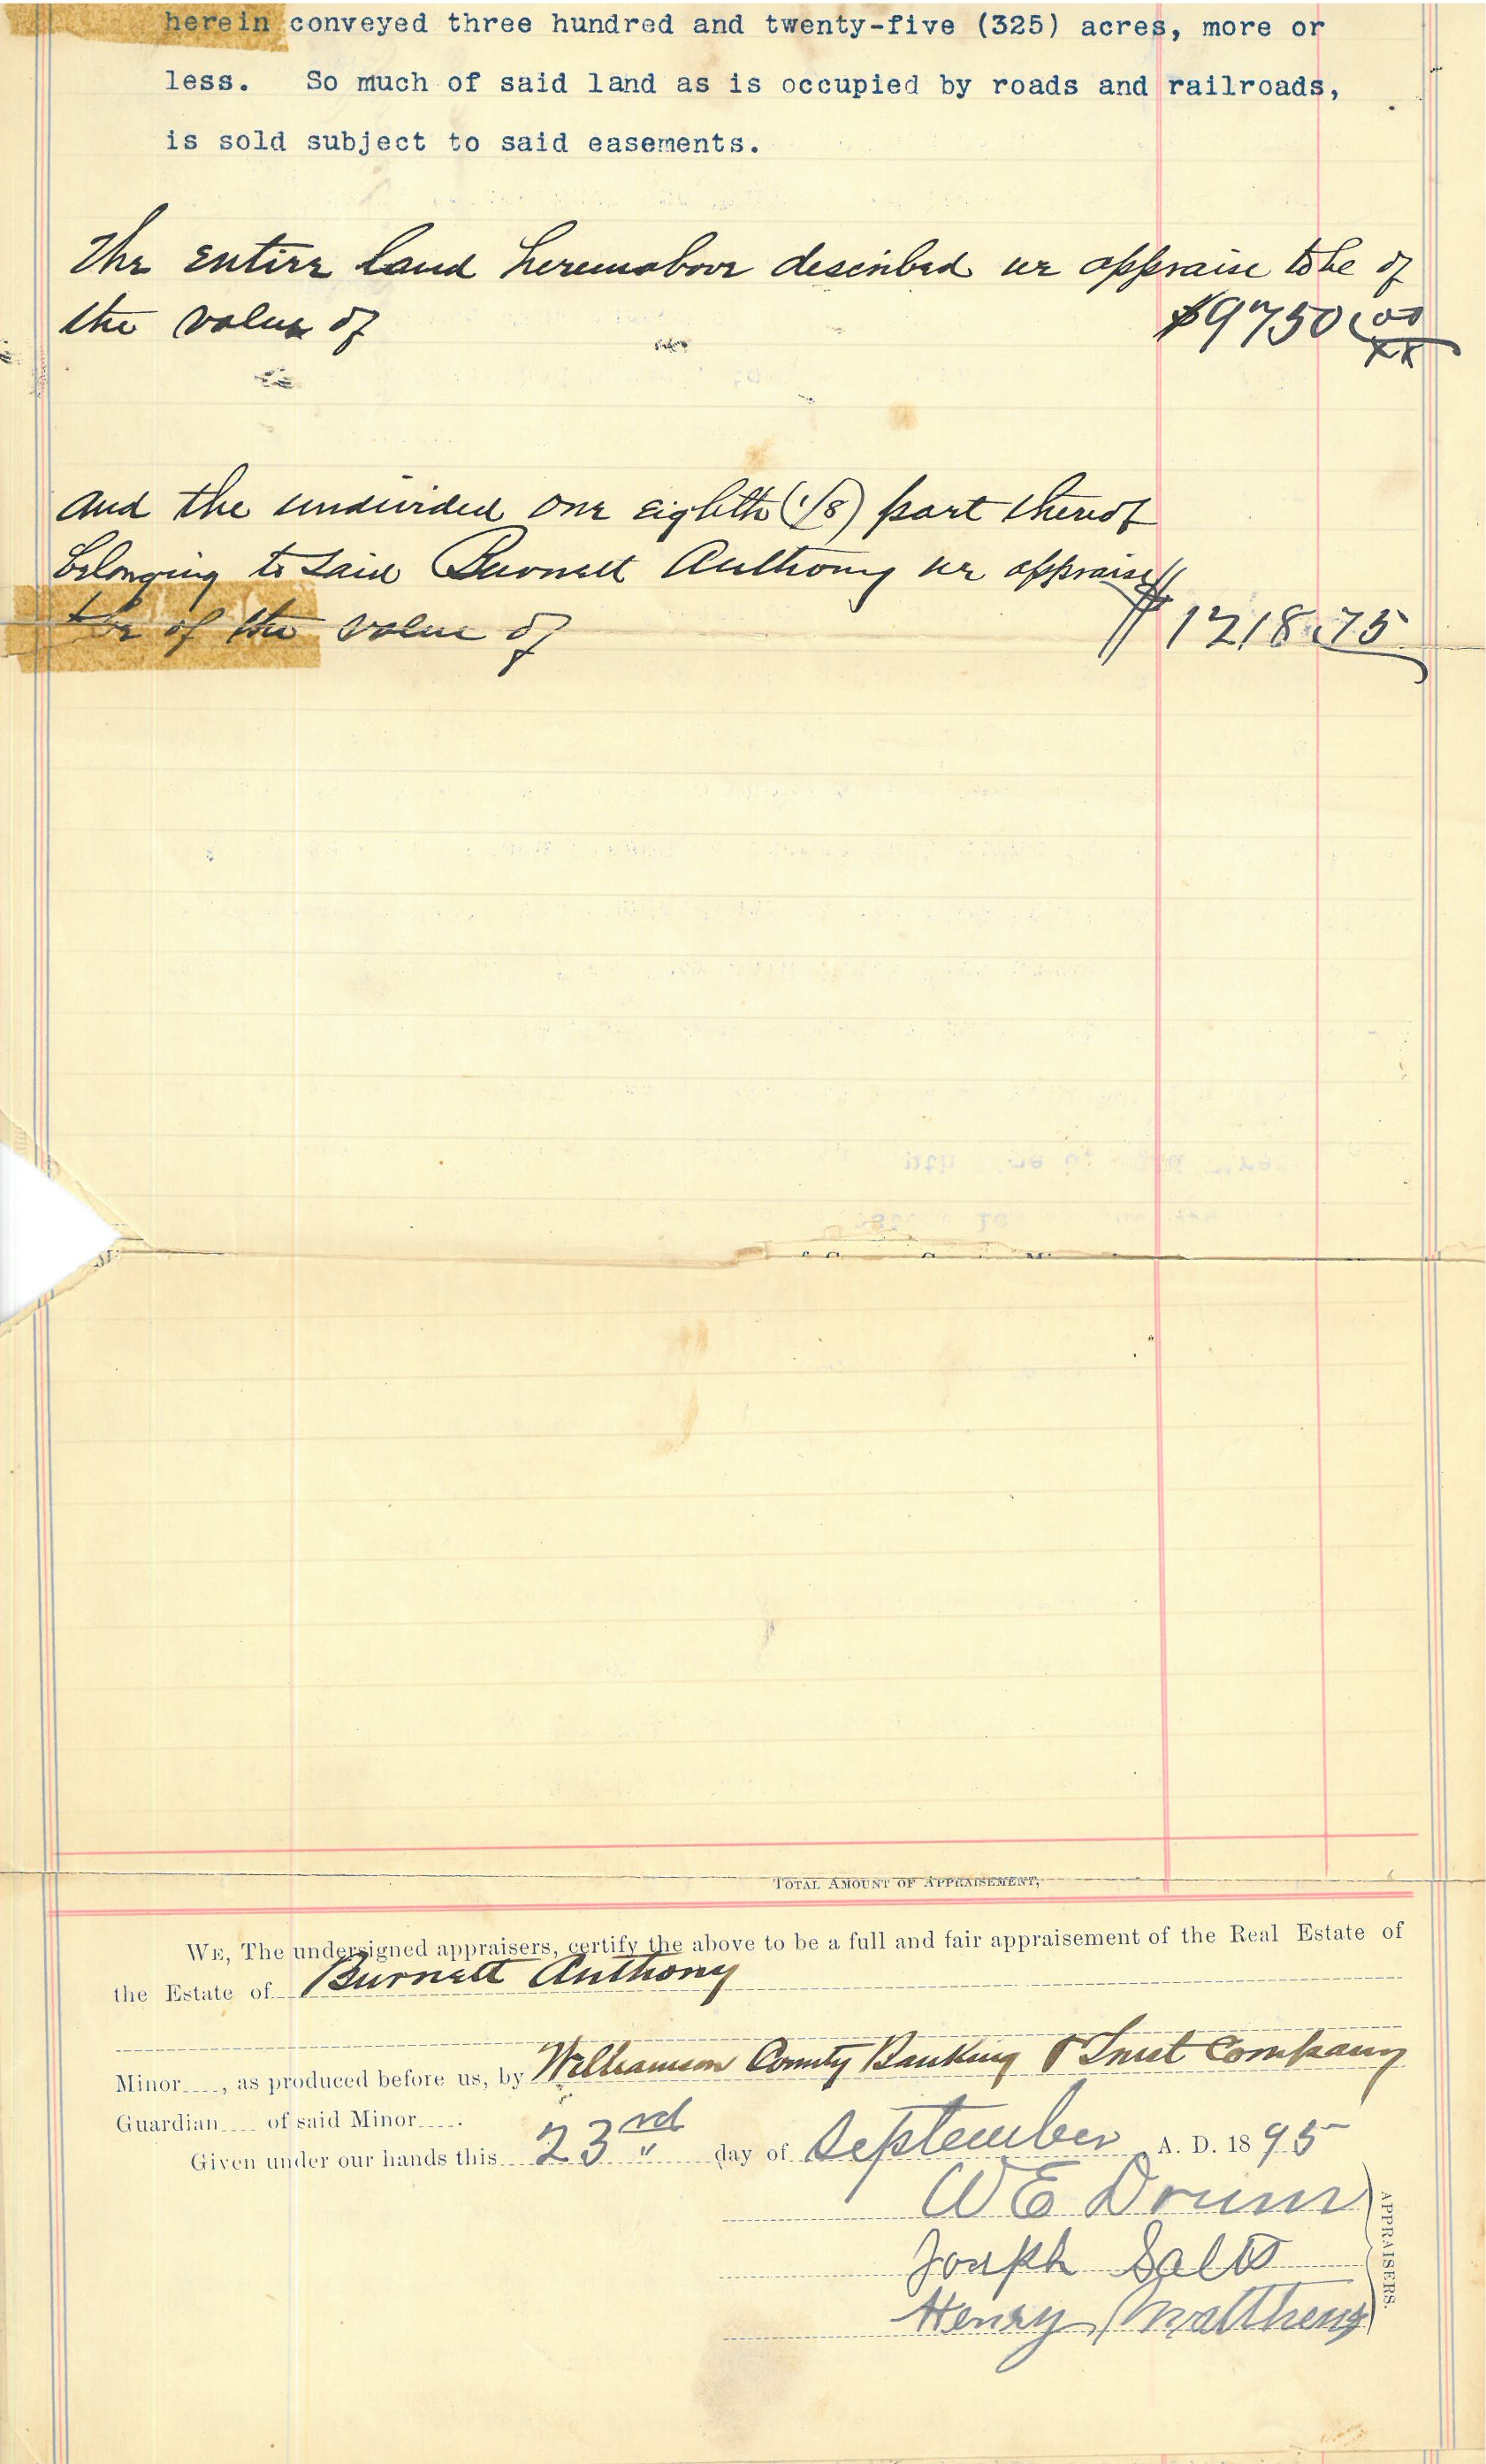 herein conveyed three hundred and twenty-five (325) acres, more or
less. So much of said land as is occupied by roads and railroads,
is sold subject to said easements.
The entire land hereinabove described we appraise to be of
the value of $9750.00/xx
and the undivided one eighth (1/8) part thereof
belonging to said Burnett Anthony we appraise
to be of the value of $1218.75
TOTAL AMOUNT OF APPRAISEMENT,
WE, The undersigned appraisers, certify the above to be a full and fair appraisement of the Real Estate of
the Estate of Burnett Anthony
Minor, as produced before us, by Williamson County Banking & Trust Company
Guardian of said Minor.
Given under our hands this 23rd day of September A. D. 1895
W E Drum
Joseph Salts
Henry Matthews
APPRAISERS.